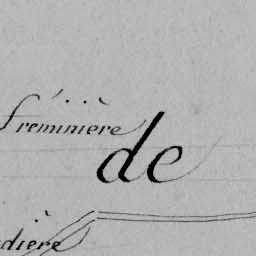 fréminière
de
dière